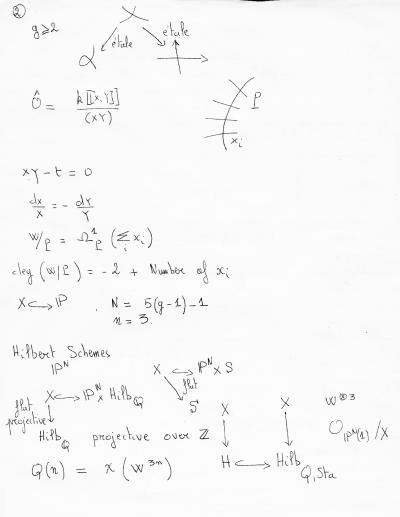 ②
g ⩾ 2
X
étale étale
α
Ô = k[[X,Y]] / (XY)
P
x_i
XY - t = 0
dX/X = - dY/Y
W/P = Ω¹_P (Σ_i x_i)
deg (W/P) = -2 + Number of x_i
X ↪ P . N = 5(g-1)-1
n = 3.
Hilbert Schemes
P^N
X ↪ P^N x S
flat
S
flat projective
X ↪ P^N x Hilb_Q
Hilb_Q projective over Z
X X W^⊗3
O_{P^N(1)} / X
H ↪ Hilb_{Q, Sta}
Q(n) = χ (W^{3n})